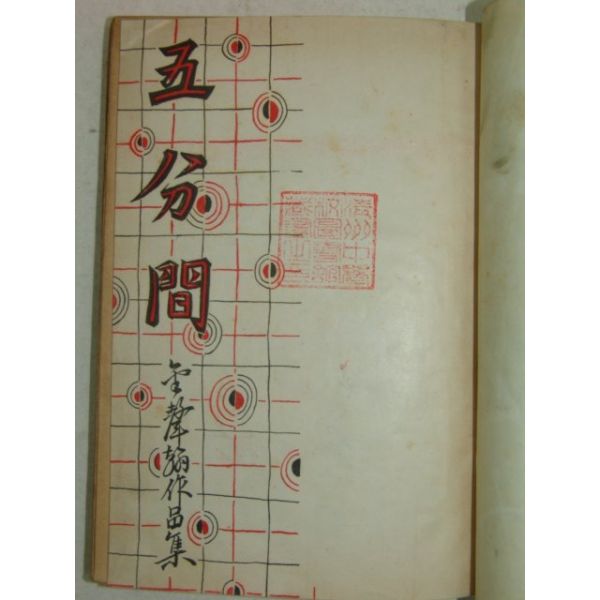 五分間
金聲翰作品集